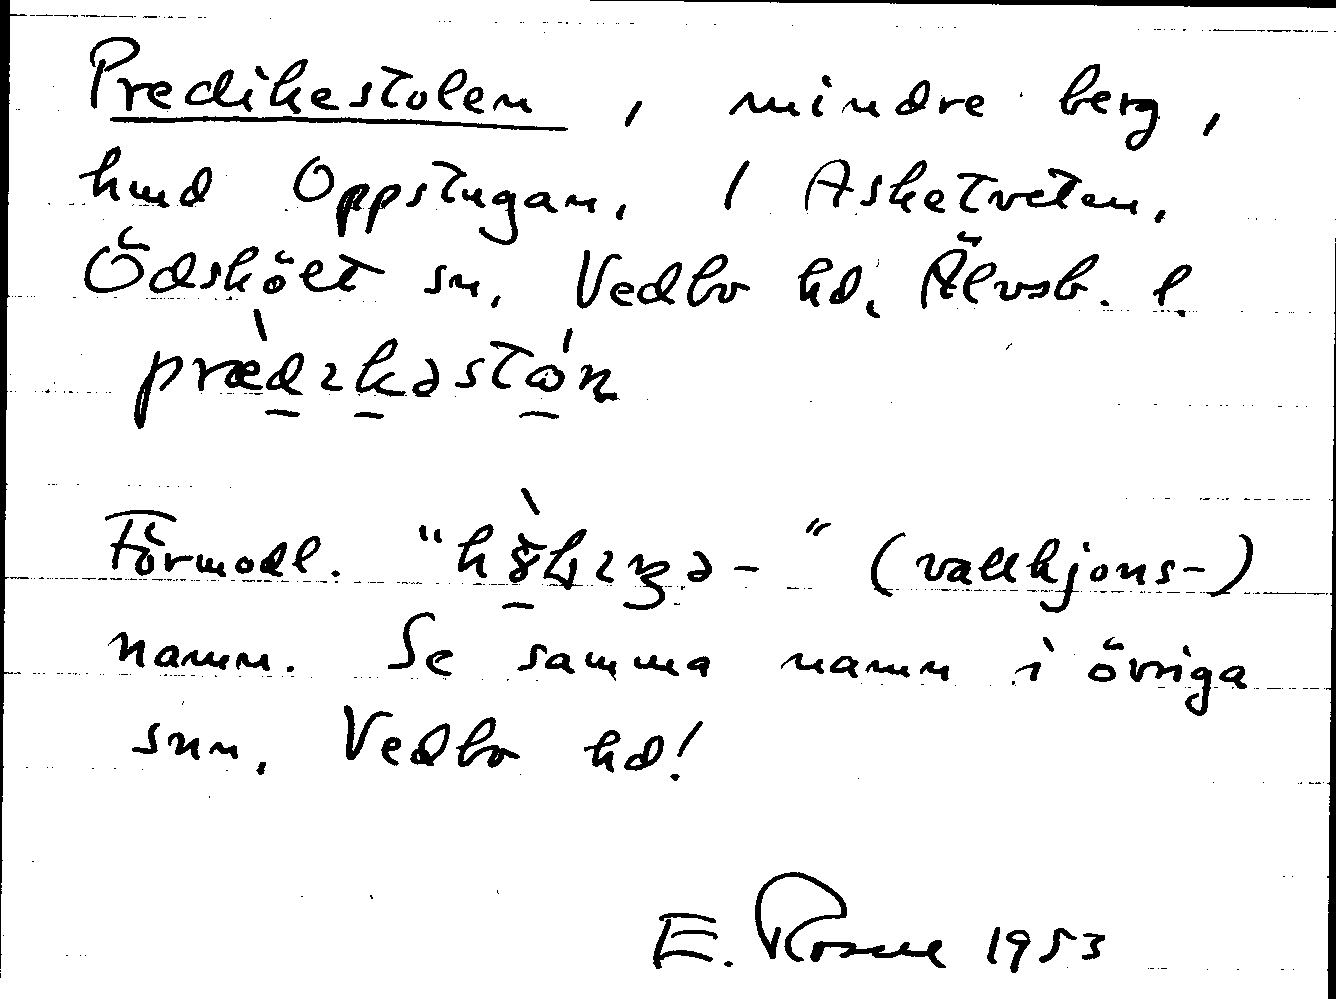 Predikestolen, mindre berg,
hmd Oppstugan, 1 Asketveten,
Ödsköłt sn, Vedbo hd, Älvsb. l.
prædıkəstȯn
Förmodl. " " (vallhjons-)
namn. Se samma namn i övriga
snn, Vedbo hd!
E. Rosell 1953